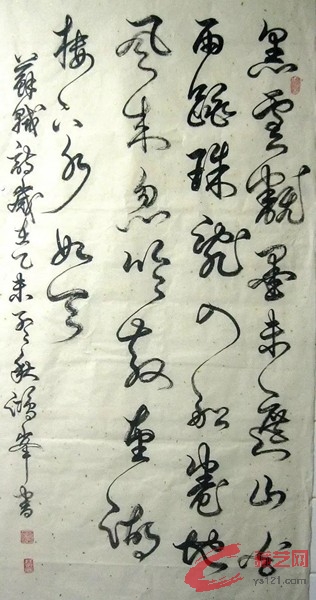 黑雲翻墨未遮山白
雨跳珠亂入船卷地
風來忽吹散望湖
樓下水如天
蘇軾詩歲在乙未秋鴻峯書
艺网
ys121.com